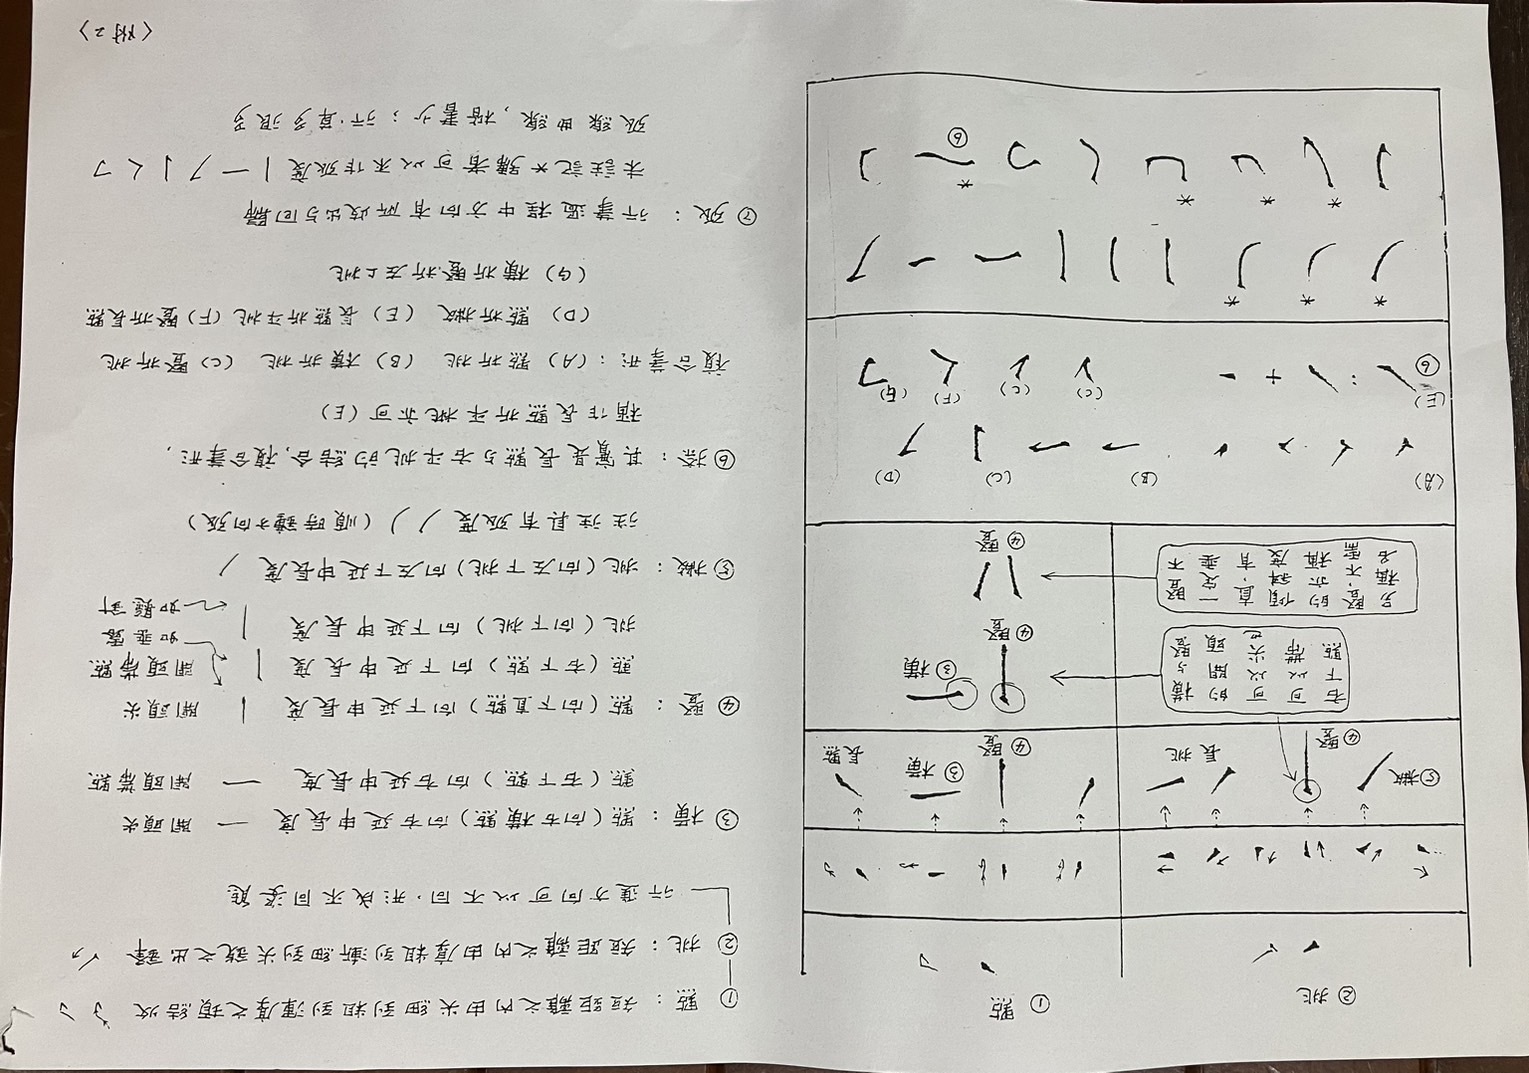 ② 挑
① 點
⑤撇
④豎
長挑
④豎
③橫
長點
橫与豎
的開頭
可以尖也
可以帶
右下點
③橫
④豎
豎不
一定垂
直,有
傾斜度
的亦稱
豎,不需
另種名
④豎
(A)
(B)
(C)
(D)
(E)
⑥ : +
(C)
(C)
(F)
* * *
* * *
*
⑥
① 點：短距離之內由尖細到粗到渾厚之頓結收
② 挑：短距離之內由厚粗到漸細到尖銳之出鋒
行進方向可以不同，形成不同姿態
③ 橫：點(向右橫點)向右延申長度 一 開頭尖
點(右下點)向右延申長度 一 開頭帶點
④ 豎：點(向下直點)向下延申長度 丨 開頭尖
點(右下點)向下延申長度 丨 開頭帶點
如垂露
挑(向下挑)向下延申長度 丨
如懸針
⑤撇：挑(向左下挑)向左下延申長度 丿
往往具有弧度 丿丿 (順時鐘方向弧)
⑥捺：其實是長點与右平挑的結合，複合筆形，
稱作長點折平挑亦可(E)
複合筆形：(A) 點折挑 (B) 橫折挑 (C) 豎折挑
(D) 點折撇 (E) 長點折平挑 (F)豎折長點
(G) 橫折豎折左上挑
⑦弧：行筆過程中方向有所改出与回歸
未註記*號者可以不作弧度
弧線曲線，楷書少；行.草多很多
〈附2〉